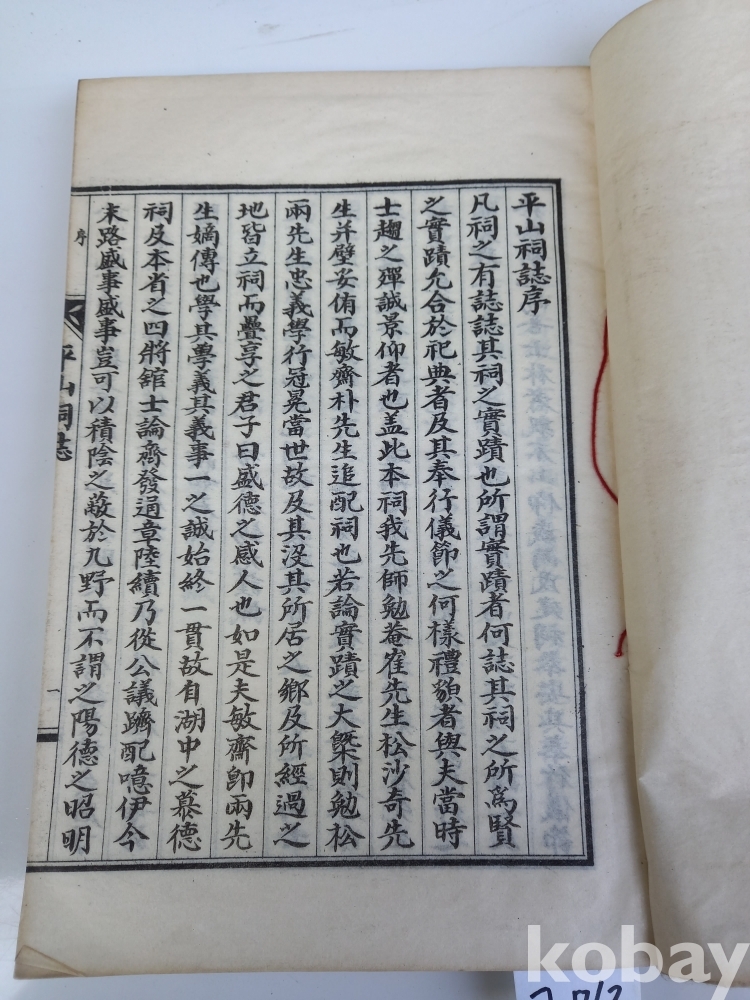 平山祠誌序
凡祠之有誌誌其祠之實蹟也所謂實蹟者何誌其祠之所爲賢
之實蹟允合於祀典者及其奉行儀節之何樣禮貌者與夫當時
士趨之殫誠景仰者也盖此本祠我先師勉菴崔先生松沙奇先
生并壁妥侑而敏齋朴先生追配祠也若論實蹟之大槩則勉松
兩先生忠義學行冠冕當世故及其沒其所居之鄉及所經過之
地皆立祠而疊享之君子曰盛德之感人也如是夫敏齋卽兩先
生嫡傳也學其學義其義事一之誠始終一貫故自湖中之慕德
祠及本省之四將舘士論齊發通章陸續乃從公議躋配噫伊今
末路盛事盛事豈可以積陰之蔽於九野而不謂之陽德之昭明
序
平山祠誌
一
kobay